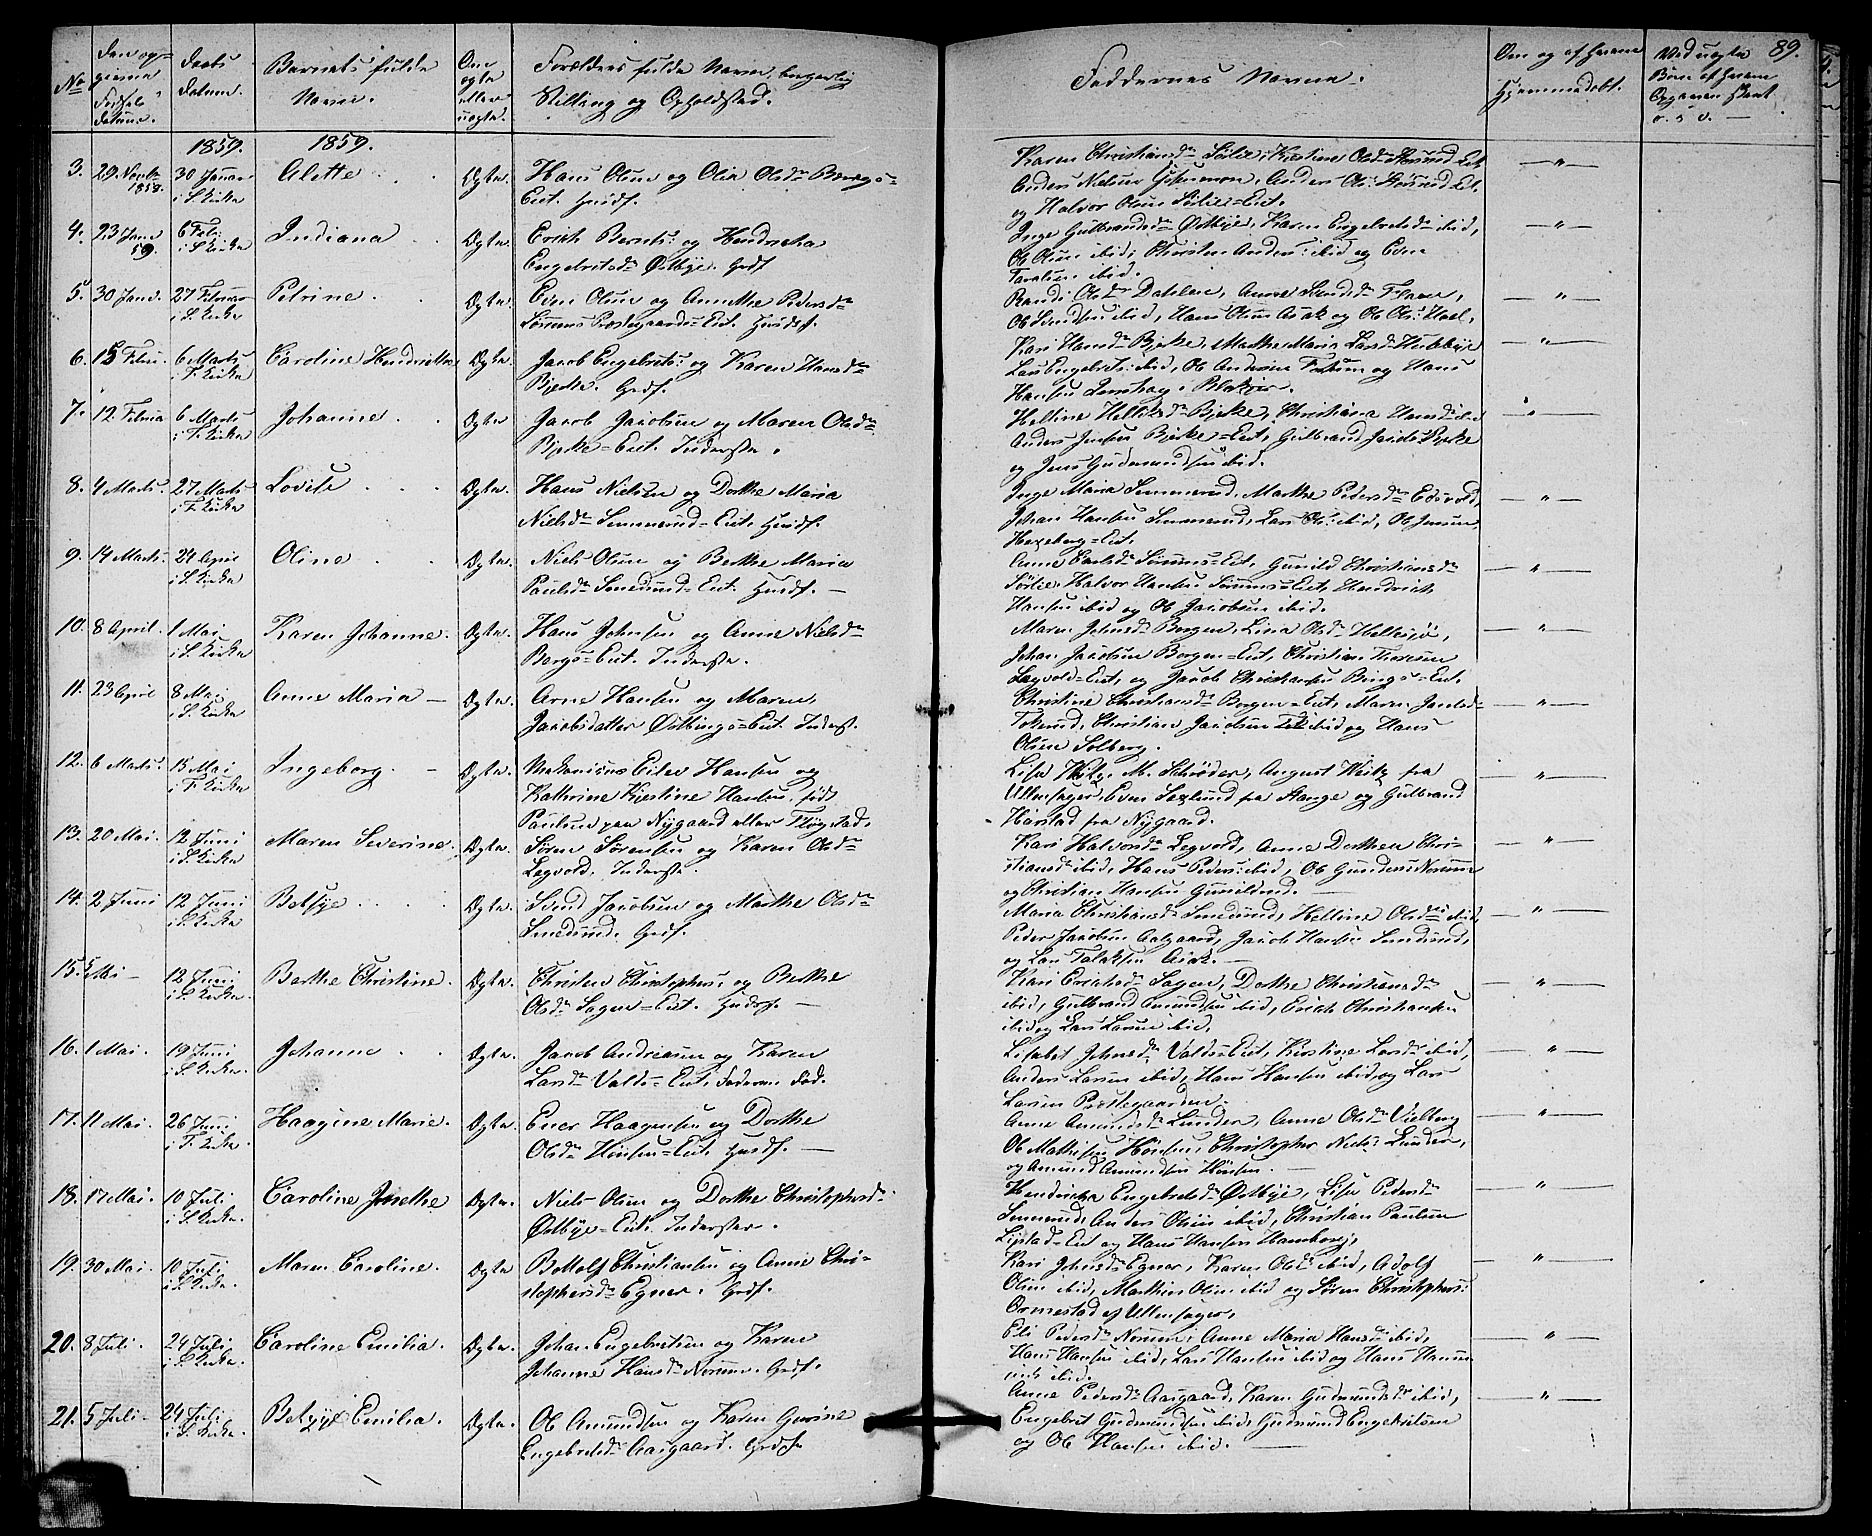 89.
No
Den og
Fødsels
datum.
Daabs
datum.
Barnets fulde
Navn.
Om
ægte
eller
uægte.
Forældres fulde Navn, borgerlig
Stilling og Opholdsted.
Faddernes Navne.
Om og af hvem
Hjemmedøbt.
Ved uægte
Børn af hvem
1859. 1859.
3. 29. Novbr 1858. 30 Januar i S. Kirke Alette Ægte. Hans Olsen og Olia Olsdr Borgs=
Eiet. Husf.
Karen Christiansdr Sørlie, Kirstine Olsdr
Anders Nielsen Anders Ols:
og Halvor Olsen Sørlie=Eiet. — " —
4. 23 Janr 59. 6 Febr i S. Kirke Indiana Ægte. Erich Bernts: og Hendricka
Engebretsdr Østbye. Grdf.
Inge Gulbrandsdr Østbye, Karen Engebretsdr ibid,
Ole Olsen ibid, Christen Anders: ibid og Even
ibid. — " —
5. 30 Janr. 27 Februar i S. Kirke Petrine Ægte. Even Olsen og Anne Mthe Pedersdr
Sørums Præstegaards=Eiet. Husf.
Randi Olsdr Dahlen, Anne
Ole Svendsen ibid, Hans Olsen Asak og Ole Ols: — " —
6. 15 Febr. 6 Marts i F. Kirke Caroline Hendrikke Ægte. Jacob Engebrets: og Karen Hansdr
Bjerke. Grdf.
Kari Hansdr Bjerke, Marthe Maria Larsdr
Lars Engebrets: ibid, Ole Andersen og Hans
Hansen i Blakjer. — " —
7. 12 Februar 6 Marts i F. Kirke Johanne Ægte Jacob Jacobsen og Maren Olsdr
Bjerke=Eiet. Inderster.
Helline Bjerke, Christiana Hansdr ibid
Anders Jensen Bjerke=Eiet, Gulbrand Jacobs: Bjerke
og Jens Gudmundsen ibid. — " —
8. 4 Marts. 27 Marts i F. Kirke Lovise Ægte. Hans Nielsen og Dorthe Maria
Nielsdr Smedsrud=Eiet. Husf.
Inge Maria Marthe Pedersdr
Johan Hansen Lars Ols: ibid, Ole Jensen
Hexeberg=Eiet. — " —
9. 14 Marts. 24 April i S. Kirke Oline Ægte. Niels Olsen og Berthe Maria
Paulsdr Smedsrud=Eiet. Husf. —
Anne Sørums=Eiet, Gunild Christiansdr
Sørlie, Halvor Hansen Sørums=Eiet, Hendrich
Hansen ibid og Ole Jacobsen ibid. — " —
10. 8 April. 1 Mai i S. Kirke Karen Johanne. Ægte. Hans Johnsen og Anne Nielsdr
Borgs=Eiet. Inderste.
Maren Johnsdr Borgen, Lina Olsdr Hellesjø,
Johan Jacobsen Borgen=Eiet, Christian Thoresen
Legvold=Eiet, og Jacob Christiansen Bings=Eiet. — " —
11. 23 April 8 Mai i S. Kirke Anne Maria — Ægte. Arne Hansen og Maren
Jacobsdatter Østbings=Eiet. Inderst.
Christine Christiansdr Borgen=Eiet, Maren Jacobsdr
Christian Jacobsen ibid og Hans
Olsen Solberg. — " —
12. 6 Marts. 15 Mai i F. Kirke Ingeborg. — Ægte. Mekanicus Eilev Hansen og
Kathrine Kjerstine Hansen, født
Paulsen paa Nygaard eller Fløgstad.
Lise M. Schrøder, August fra
Ullensager, Even fra Stange og Gulbrand
Harstad fra Nygaard. — " —
13. 20 Mai. 12 Juni i S. Kirke Maren Severine. Ægte. Søren Sørensen og Karen Olsdr
Legvold. Inderste.
Kari Halvorsdr Legvold, Anne Dorthea Chri-
stiansdr ibid, Hans Peders: ibid, Ole Gundersen Norum
og Christian Hansen — " —
14. 2 Juni 12 Juni i S. Kirke Betsye Ægte. Svend Jacobsen og Marthe Olsdr
Smedsrud. Grdf.
Maria Christiansdr Smedsrud, Helline Olsdr ibid,
Peder Jacobsen Aasgaard, Jacob Hansen Smedsrud,
og Lars Asak. — — " —
15. 5 Mai — 12 Juni i S. Kirke. Berthe Christine. Ægte. Christen Christophers: og Berthe
Olsdr Sagen=Eiet. Husf. —
Kari Erichsdr Sagen, Dorthe Christiansdr
ibid, Gulbrand Amundsen ibid, Erich Christiansen
ibid og Lars Larsen ibid. — " —
16. 1 Mai. 19 Juni i S. Kirke. Johanne Ægte. Jacob Andreasen og Karen
Larsdr Valds=Eiet. Faderen Fød.
Lisabet Johnsdr Valds=Eiet, Kirstine Larsdr ibid,
Anders Larsen ibid, Hans Hansen ibid, og Lars
Larsen Præstegaarden. — " —
17. 11 Mai. 26 Juni i F. Kirke. Haagine Marie. Ægte. Ener Haagensen og Dorthe
Olsdr Hønsen=Eiet. Husf. —
Anne Amundsdr Lunder, Anne Olsdr Vielberg
Ole Mathisen Hønsen, Christopher Niels: Lunder,
og Amund Amundsen Hønsen. — — " —
18. 17 Mai. 10 Juli i S. Kirke. Caroline Josethe Ægte. Niels Olsen og Dorthe Christophersdr
Østbye=Eiet. Inderster.
Hendricka Engebretsdr Østbye, Lise Pedersdr
Anders Olsen ibid, Christian Paulsen
og Hans Hansen Hamborg. — " —
19. 30 Mai. 10 Juli i S. Kirke. Maren Caroline. Ægte Bottolf Christiansen og Anne Chri-
stophersdr Egner. Grdf.
Kari Johnsdr Egner, Karen Olsdr ibid, Adolf
Olsen ibid, Mathias Olsen ibid og Søren Christophers:
Ormestad af Ullensager. — " —
20. 8 Juli. 24 Juli i S. Kirke. Caroline Emilia. Ægte. Johan Engebretsen og Karen
Johanne Hansdr Norum. Grdf.
Eli Pedersdr Norum, Anne Maria Hansdr ibid,
Hans Hansen ibid, Lars Hansen ibid og Hans
ibid. — " —
21. 5 Juli. 24 Juli i S. Kirke. Betzye Emilia. Ægte. Ole Amundsen og Karen Gurine
Engebretsdr Aasgaard. Grdf.
Anne Pedersdr Aasgaard, Karen Gudmundsdr ibid,
Engebret Gudmundsen ibid, Gudmund Engebretsen
og Ole Hansen ibid. — — " —